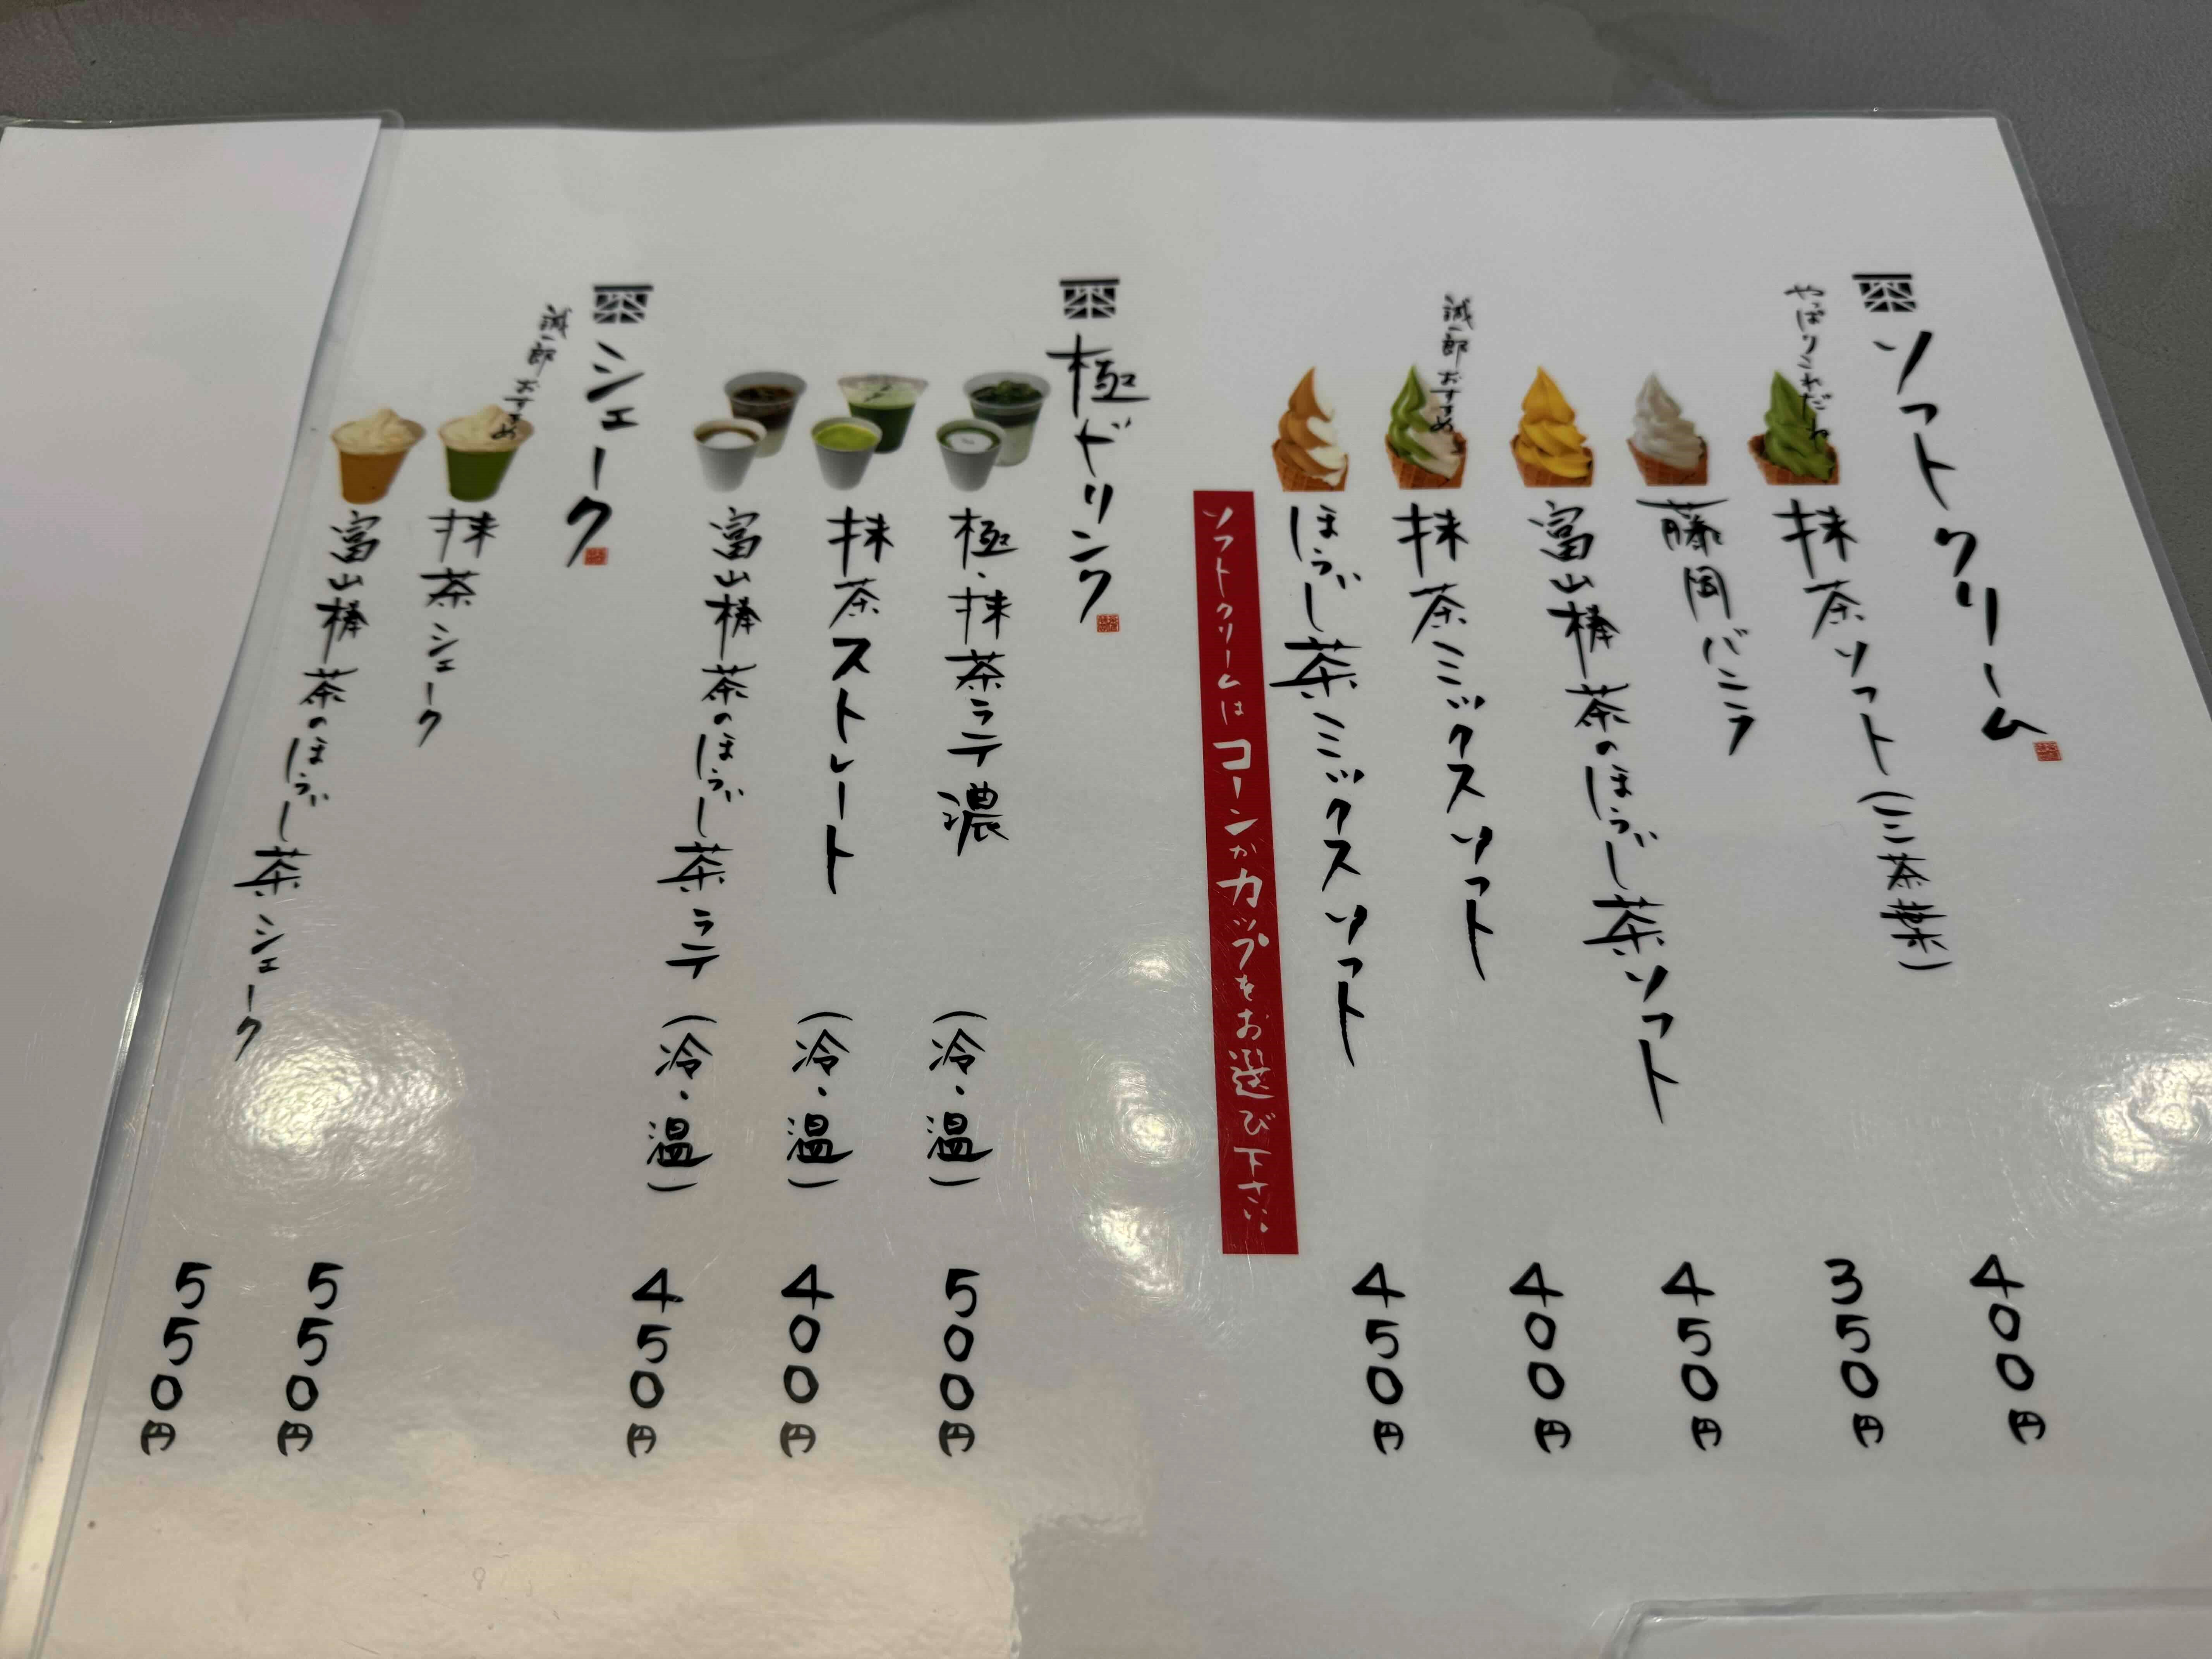 ソフトクリーム
やっぱりこれだね
抹茶ソフト(三茶葉)
400円
藤岡バニラ
350円
富山棒茶のほうじ茶ソフト
450円
誠一郎おすすめ
抹茶ミックスソフト
400円
ほうじ茶ミックスソフト
450円
ソフトクリームはコーンかカップをお選び下さい
極ドリンク
極・抹茶ラテ濃
(冷・温)
500円
抹茶ストレート
(冷・温)
400円
富山棒茶のほうじ茶ラテ
(冷・温)
450円
シェーク
誠一郎おすすめ
抹茶シェーク
550円
富山棒茶のほうじ茶シェーク
550円